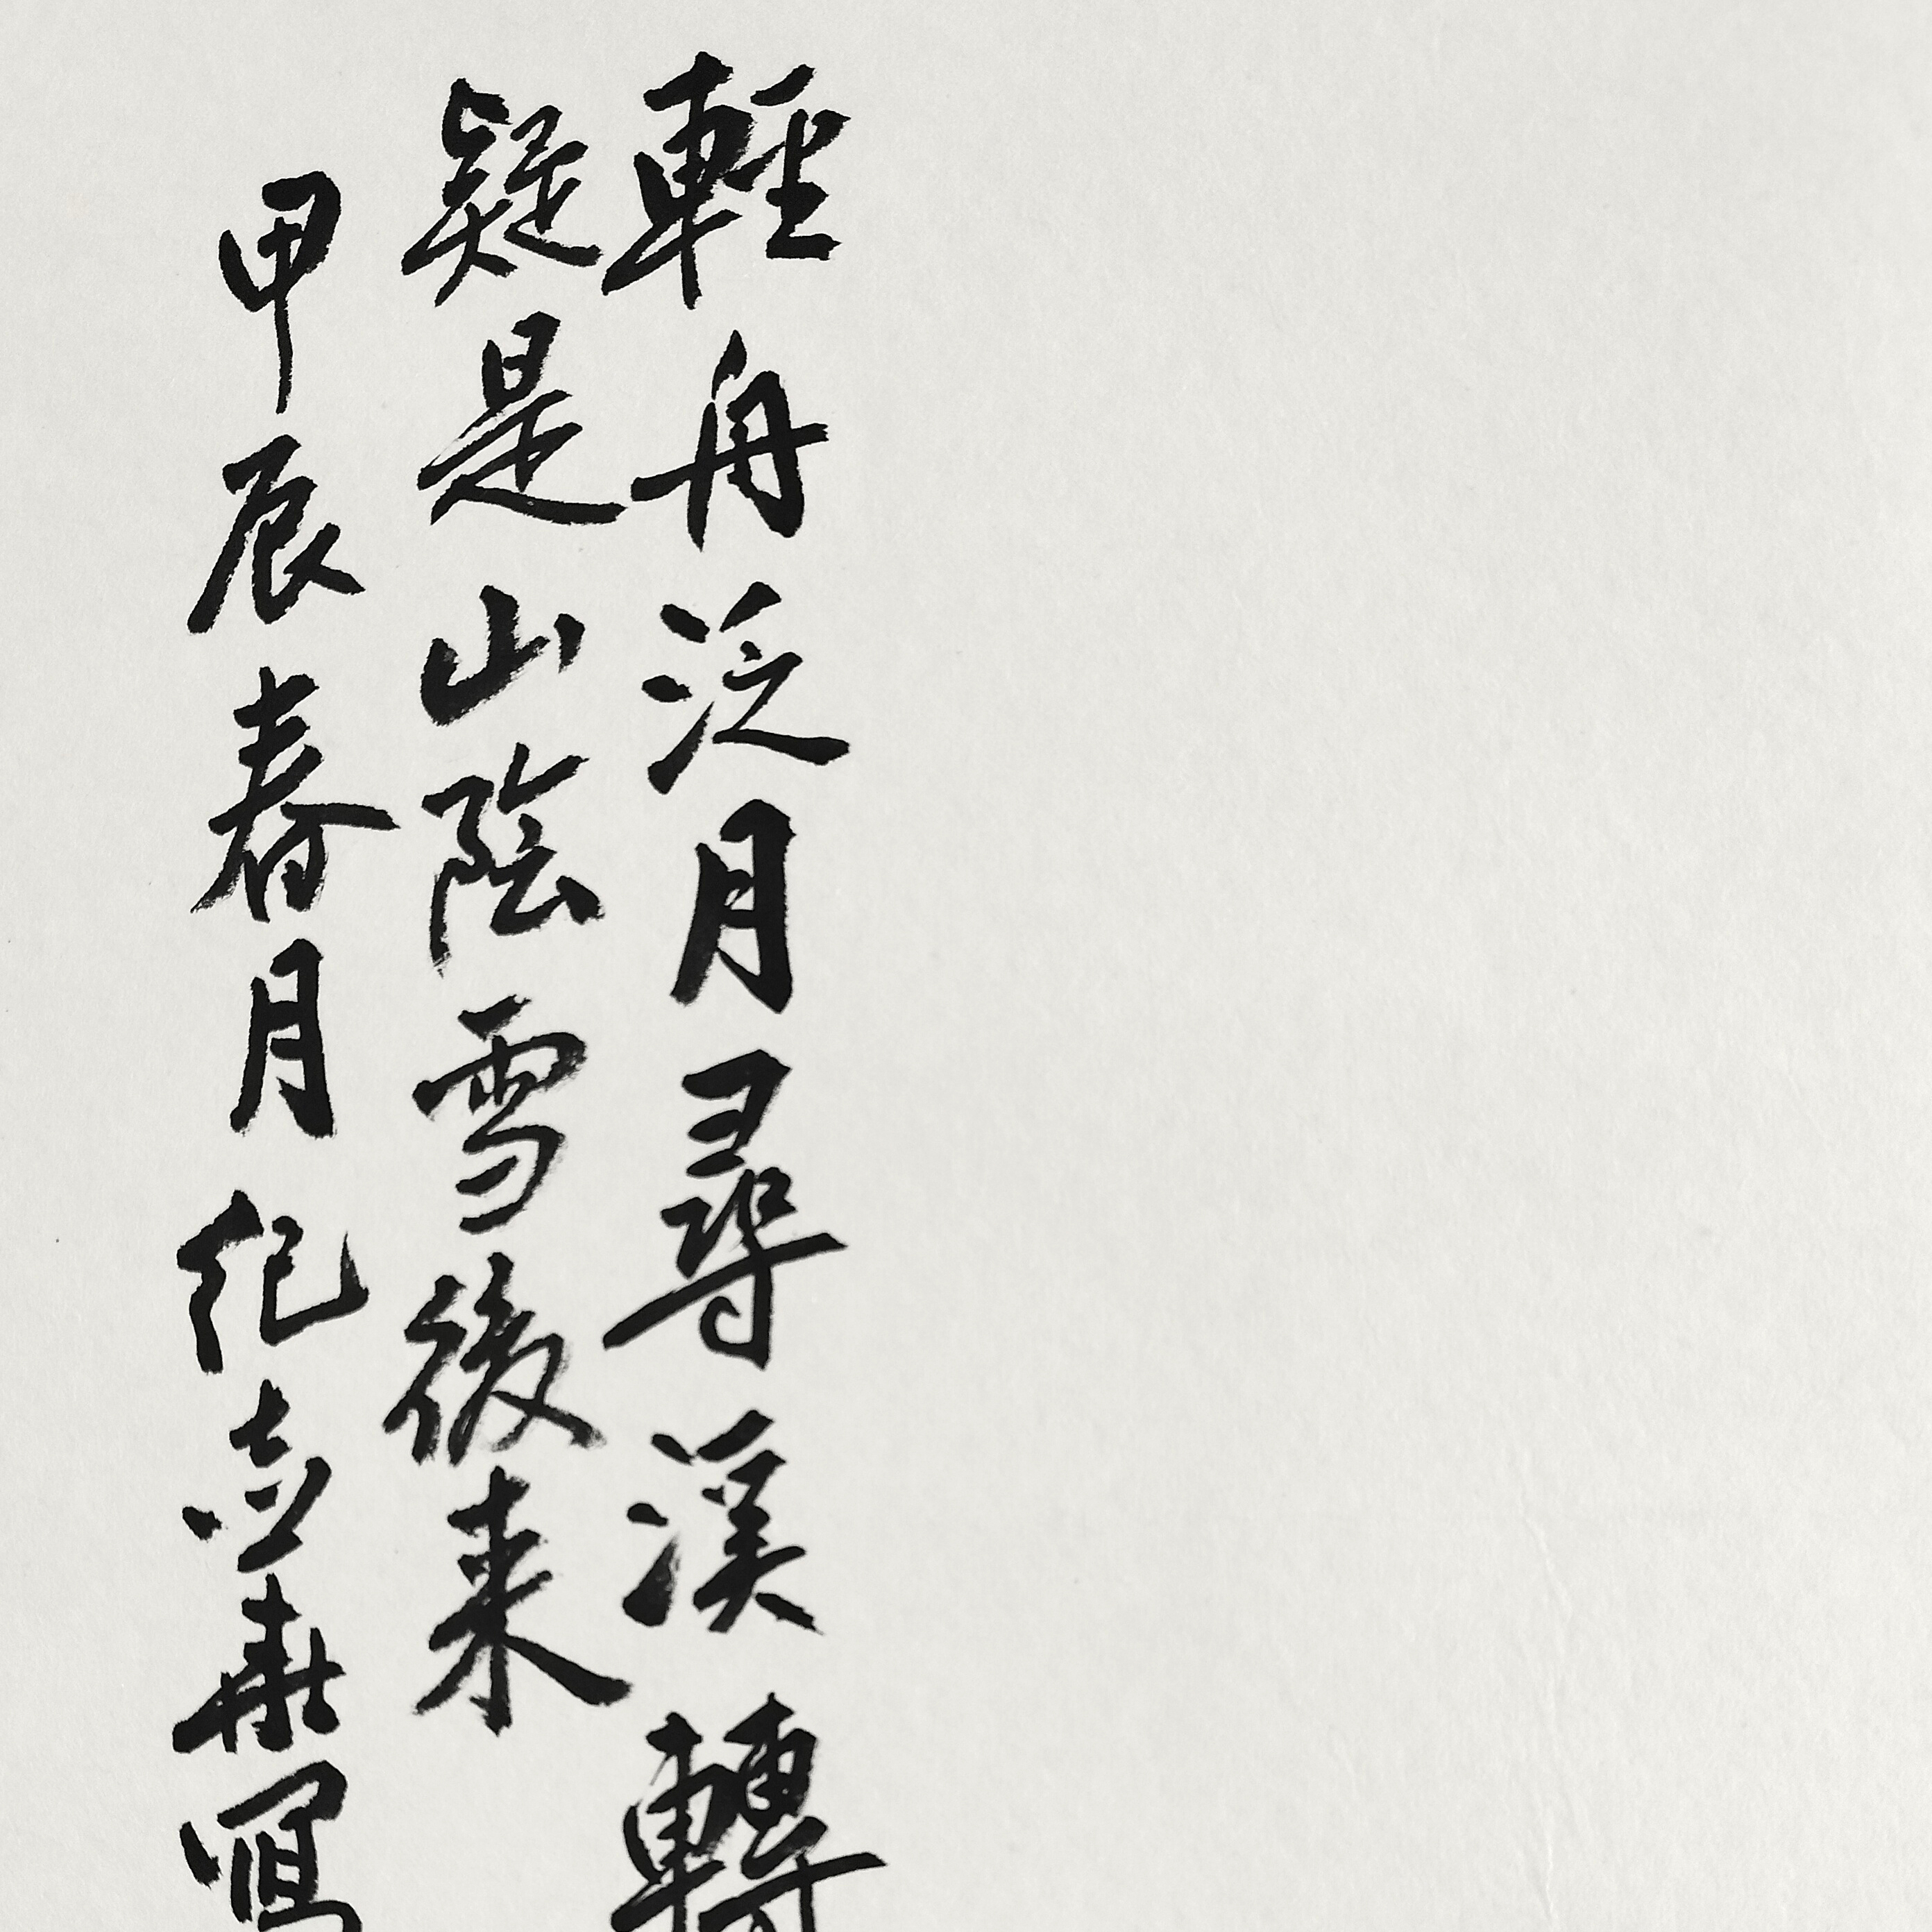 輕舟泛月尋溪轉
疑是山陰雪後来
甲辰春月紀志燕寫